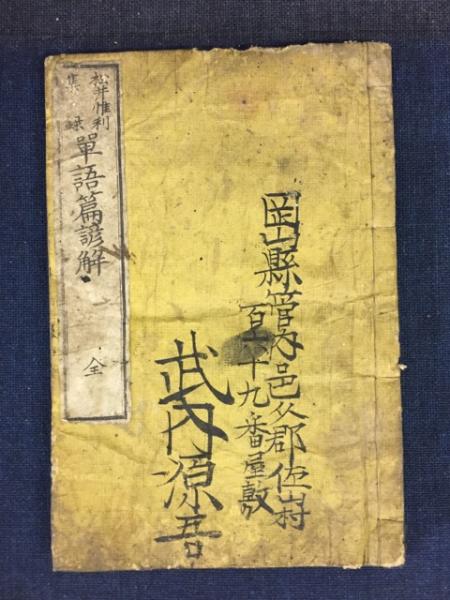 岡山縣管内邑久郡佐山村
百六十九番屋敷
武内源吾
松井惟利
集録
單語篇諺解
全